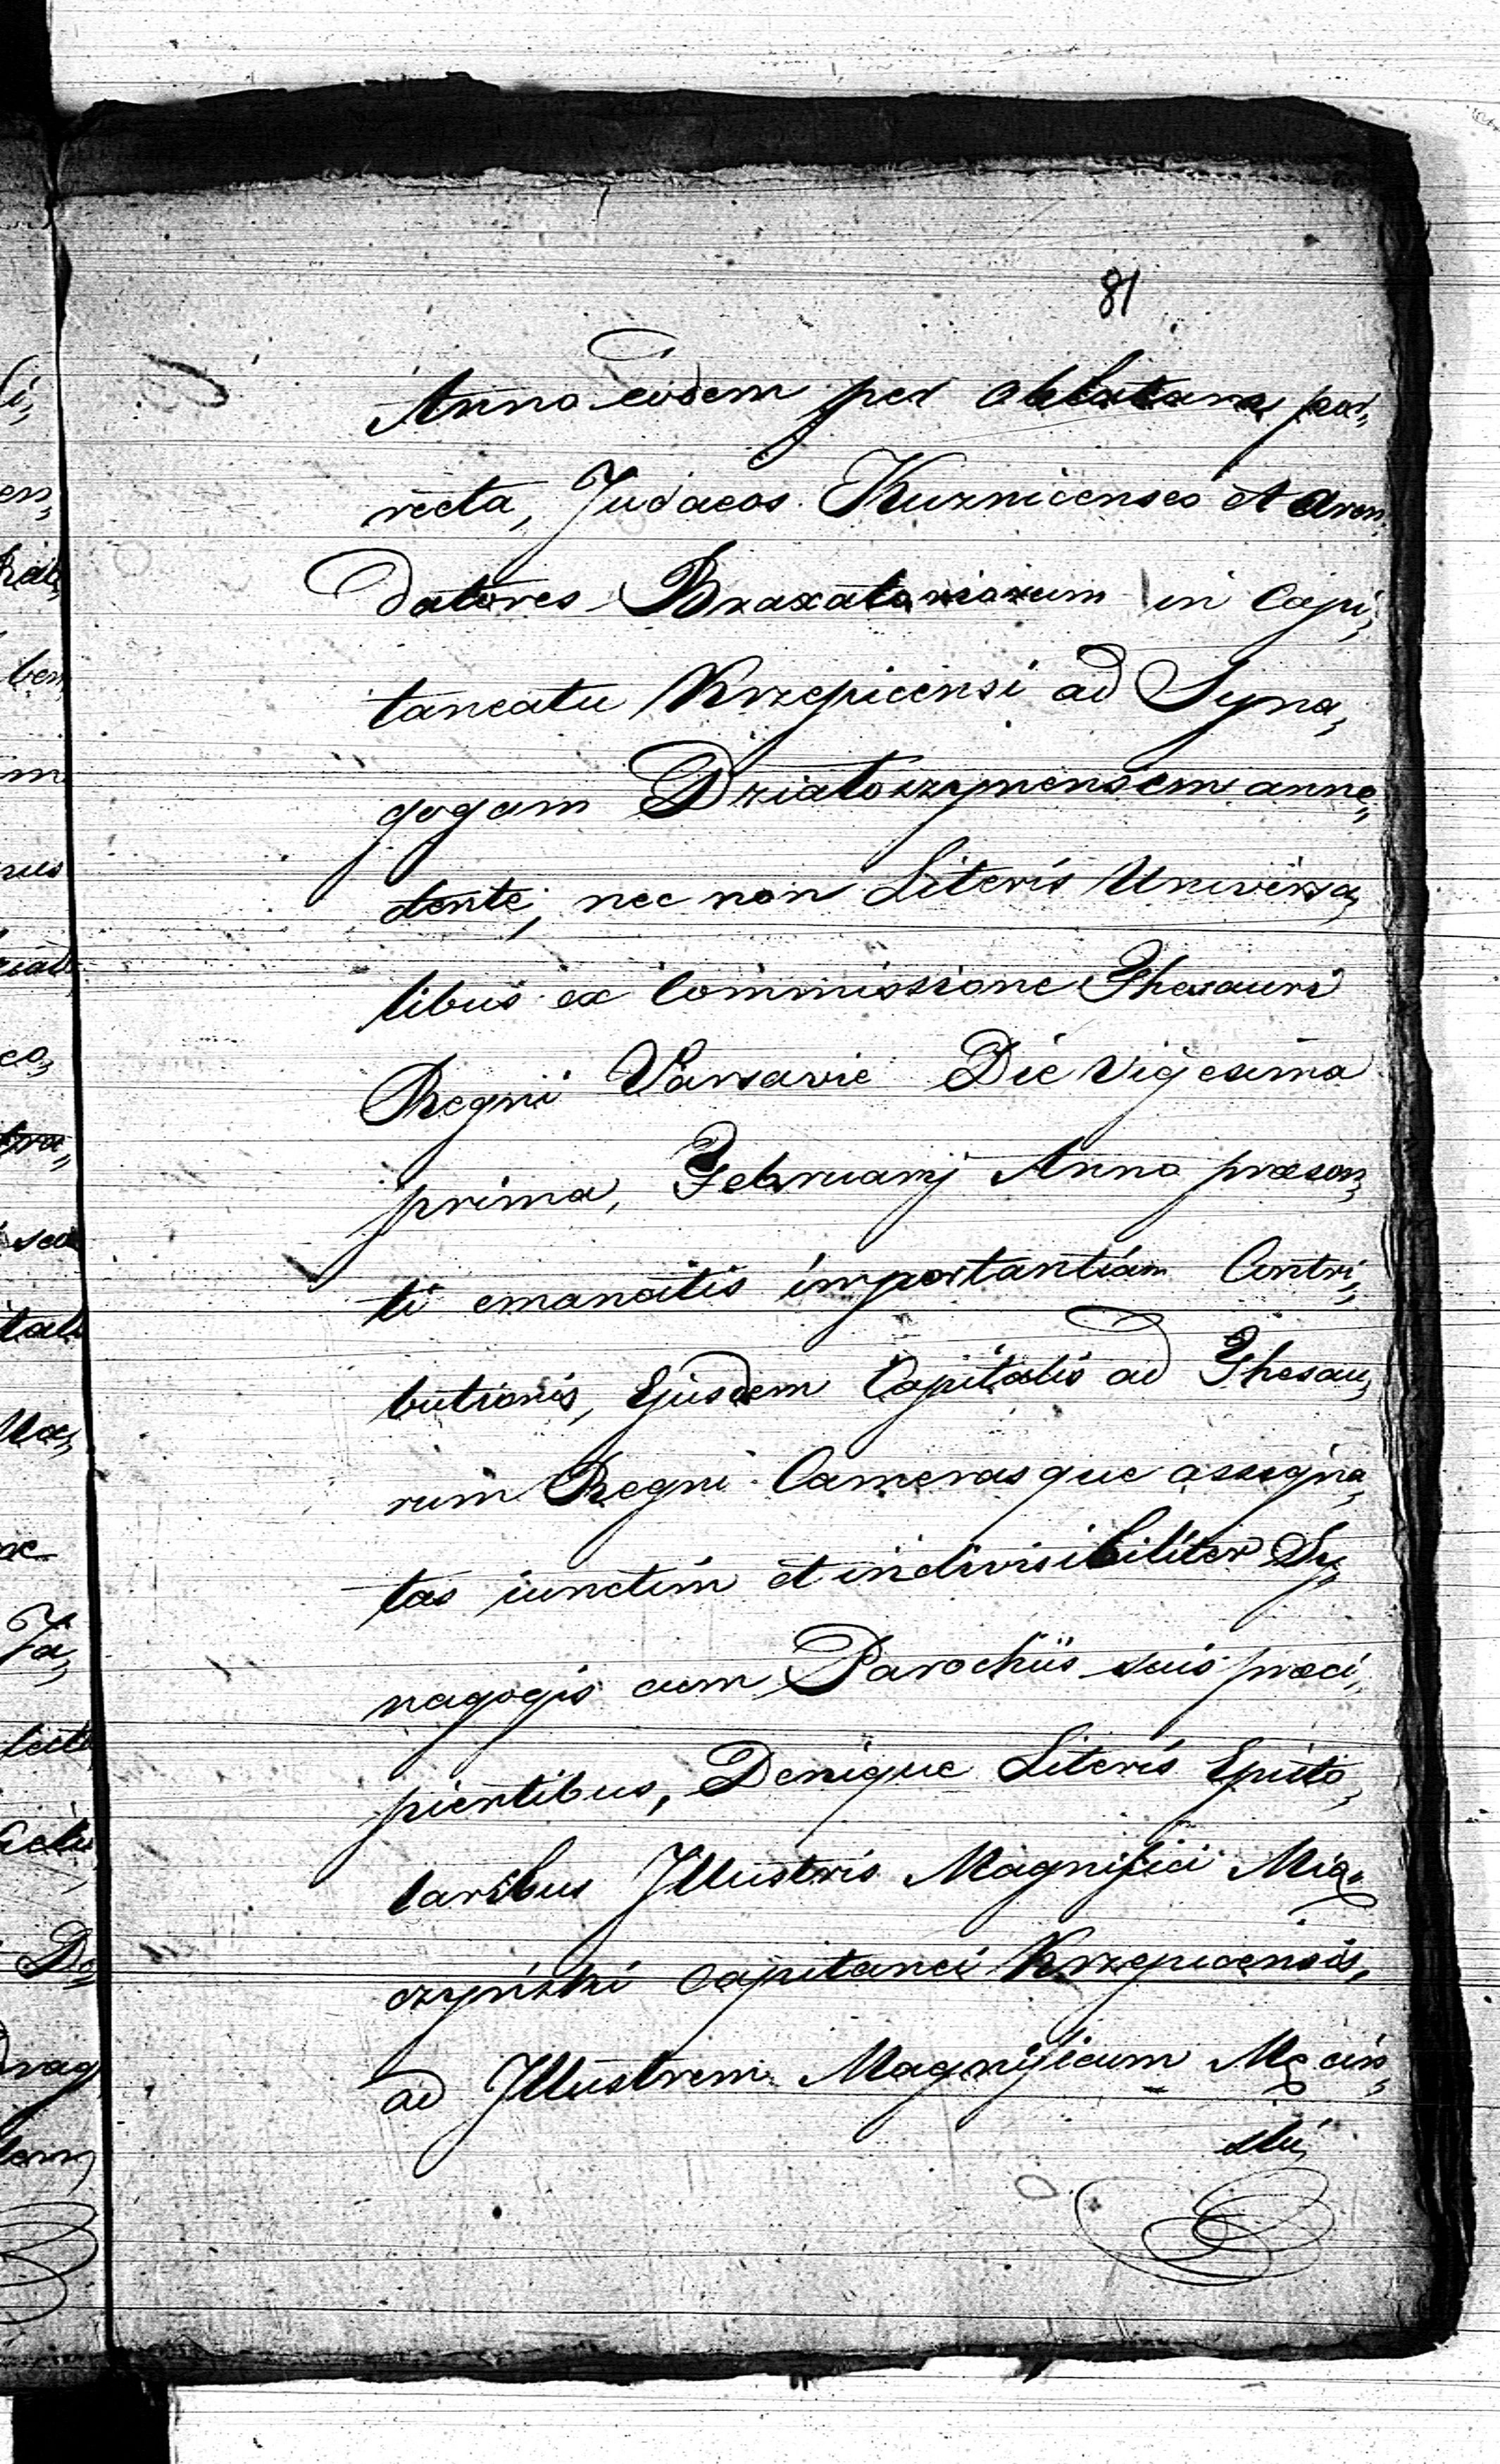 81
Anno eodem per oblatam por„
recta, Judaeos Kuznicenses et aren„
datores Braxatoriorum in Capi„
taneatu Krzepicensi ad Syna„
gogam Dziatoszynensem anne„
ctente, nec non Literis Universa„
libus ex Commissione Thesauri
Regni Varsavie Die vigesima
prima, Februarij Anno praesen„
ti emanatis importantiam Contri„
butionis, Ejusdem Capitalis ad Thesau„
rum Regni Camerasque assigna„
tas iunctim et indivisibiliter Sy„
nagogis cum Parochiis suis praeci„
pientibus, Denique Literis Episto„
laribus Jllustris Magnifici Mią„
czyński Capitanei Krzepicensis,
ad Jllustrem Magnificum Męcin„
ski,